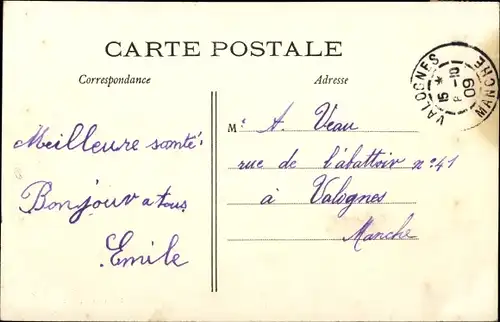 CARTE POSTALE
Correspondance
Adresse
VALOGNES
MANCHE
15
-10
09
Meilleure santé.
Bonjour a tous
Emile
M. A. Veau
rue de l'abattoir n° 41
à Valognes
Manche